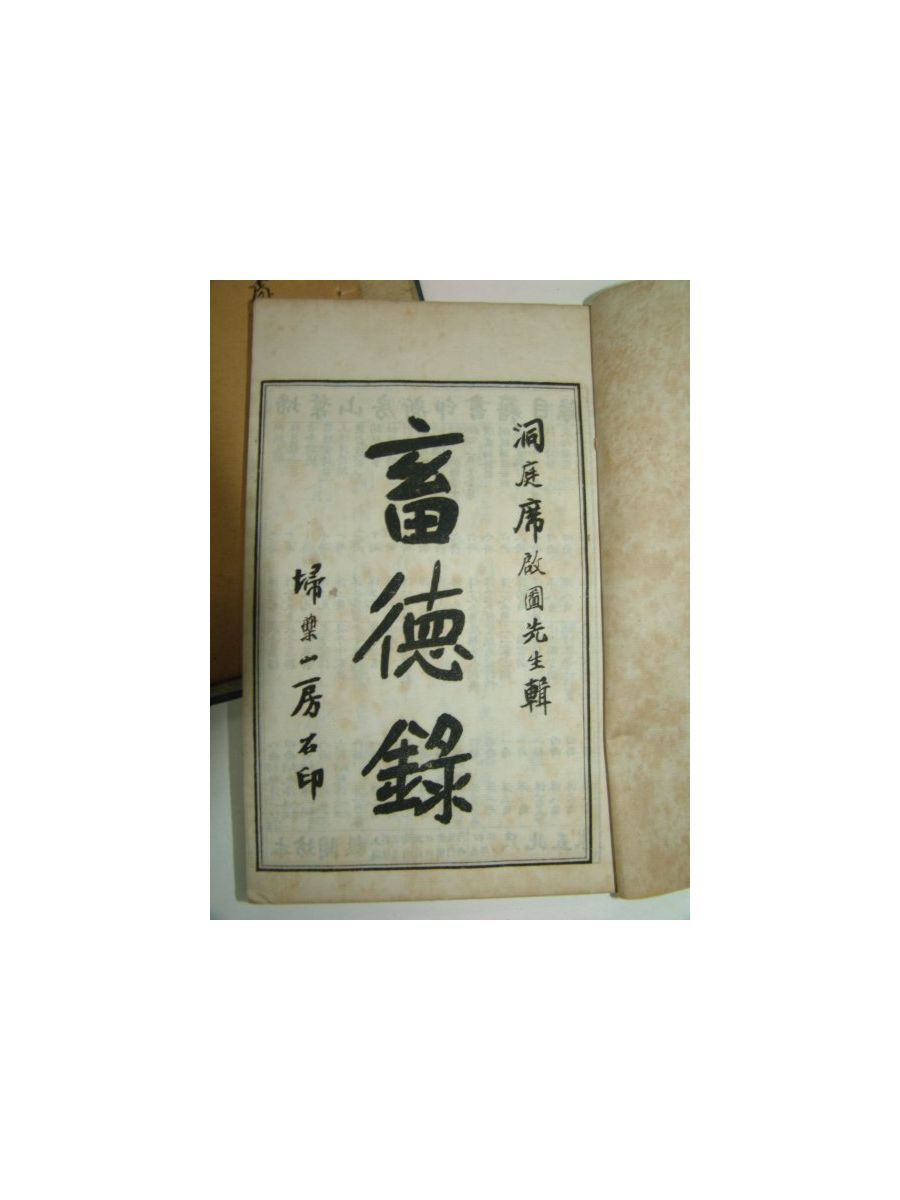 洞庭席啟圖先生輯
畜德錄
掃葉山房石印